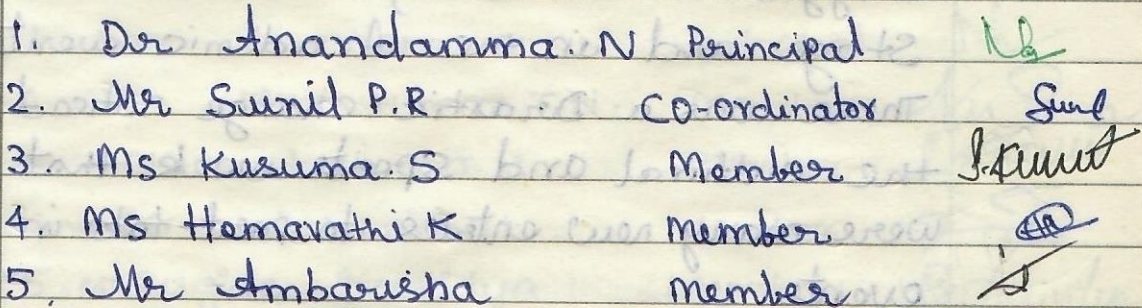 1. Dr Anandamma. N Principal
2. Mr Sunil P.R Co-ordinator Sunil
3. Ms Kusuma. S Member
4. Ms Hemavathi K Member
5. Mr Ambarisha Member